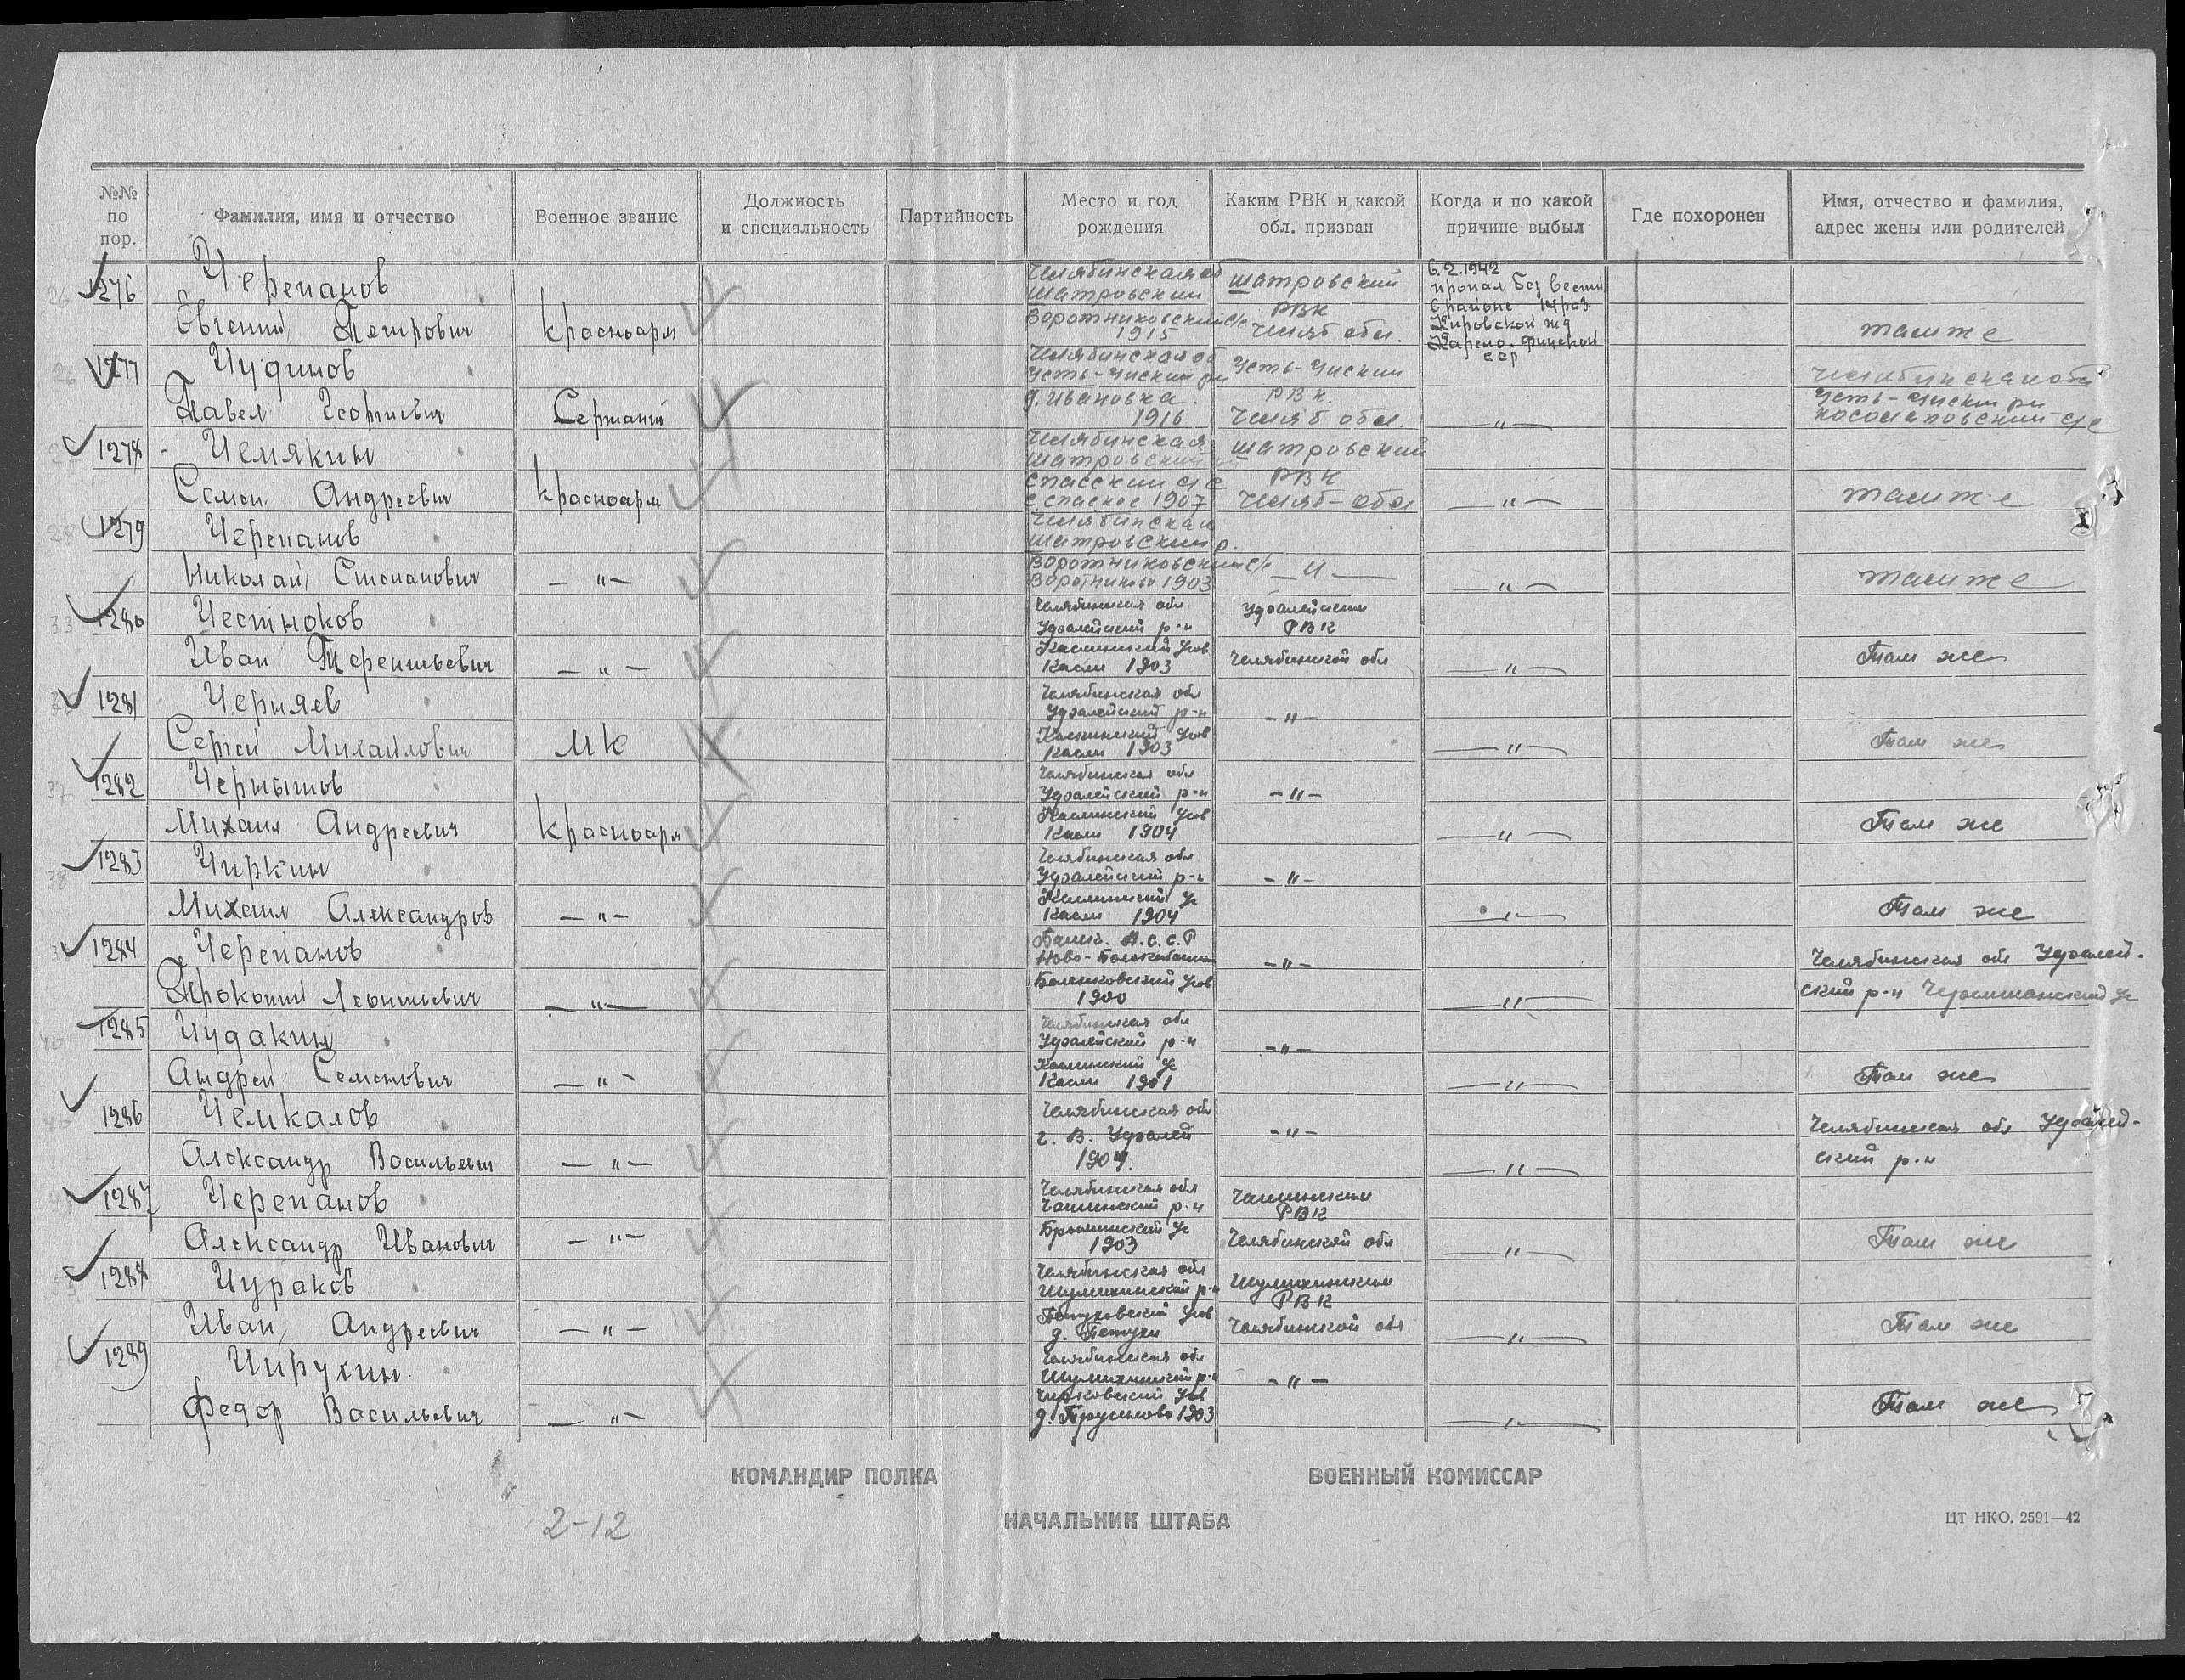 №№ по пор.
Фамилия, имя и отчество
Военное звание
Должность и специальность
Партийность
Место и год рождения
Каким РВК и какой обл. призван
Когда и по какой причине выбыл
Где похоронен
Имя, отчество и фамилия, адрес жены или родителей
1276
Черепанов
Евгений Петрович
Красноарм
Челябинская об
Шатровский
Воротниковский с/с
1915
Шатровский
РВК
Челяб обл.
6.2.1942
пропал без вести
в районе 14 раз
Кировской жд
Карело-финской
сср
там же
1277
Чудинов
Павел Георгиевич
Сержант
Челябинская об
Усть-Уиский рн
д. Ивановка.
1916
Усть-Уиский
РВК.
Челяб обл.
— " —
Челябинская обл
Усть-Уиский рн
с/с
1278
Чемякин
Семен Андреевич
Красноарм
Челябинская
Шатровский
Спасский с/с
с. Спаское 1907
Шатровский
РВК
Челяб-обл
— " —
там же
1279
Черепанов
Николай Степанович
— " —
Челябинская
Шатровский р.
Воротниковский с/с
Воротниково 1903
— " —
— " —
там же
1280
Честноков
Иван Терентьевич
— " —
Челябинская обл
Уфалейский р-н
Каслинский
Касли 1903
Уфалейским
РВК
Челябинской обл
— " —
Там же
1281
Черняев
Сергей Михайлович
МК
Челябинская обл
Уфалейский р-н
Каслинский
Касли 1903
— " —
— " —
Там же
1282
Чернышов
Михаил Андреевич
Красноарм
Челябинская обл
Уфалейский р-н
Каслинский
Касли 1904
— " —
— " —
Там же
1283
Чиркин
Михаил Александров
— " —
Челябинская обл
Уфалейский р-н
Каслинский
Касли 1904
— " —
— " —
Там же
1284
Черепанов
Прокопий Леонтьевич
— " —
Башк. А.С.С.Р
1900
— " —
— " —
Челябинская обл Уфалей-
ский р-н
1285
Чудакин
Андрей Семенович
— " —
Челябинская обл
Уфалейский р-н
Каслинский
Касли 1901
— " —
— " —
Там же
1286
Чемкалов
Александр Васильевич
— " —
Челябинская обл
г. В. Уфалей
1904.
— " —
— " —
Челябинская обл Уфалей-
ский р-н
1287
Черепанов
Александр Иванович
— " —
Челябинская обл
Чашинский р-н
1903
Чашинским
РВК
Челябинской обл
— " —
Там же
1288
Чураков
Иван Андреевич
— " —
Челябинская обл
Шумихинский р-н
Петуховский
д. Петухи
Шумихинским
РВК
Челябинской обл
— " —
Там же
1289
Чирухин.
Федор Васильевич
— " —
Челябинская обл
Шумихинский р-н
1903
— " —
— " —
Там же
КОМАНДИР ПОЛКА
ВОЕННЫЙ КОМИССАР
НАЧАЛЬНИК ШТАБА
2-12
ЦТ НКО. 2591—42